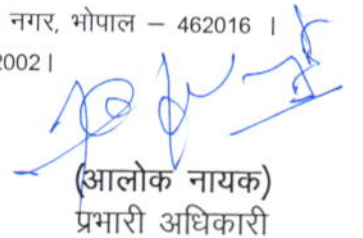 नगर, भोपाल – 462016 ।
2002।
(आलोक नायक)
प्रभारी अधिकारी